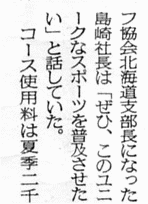 フ協会北海道支部長になった
島崎社長は「ぜひ、このユニ
ークなスポーツを普及させた
い」と話していた。
コース使用料は夏季二千